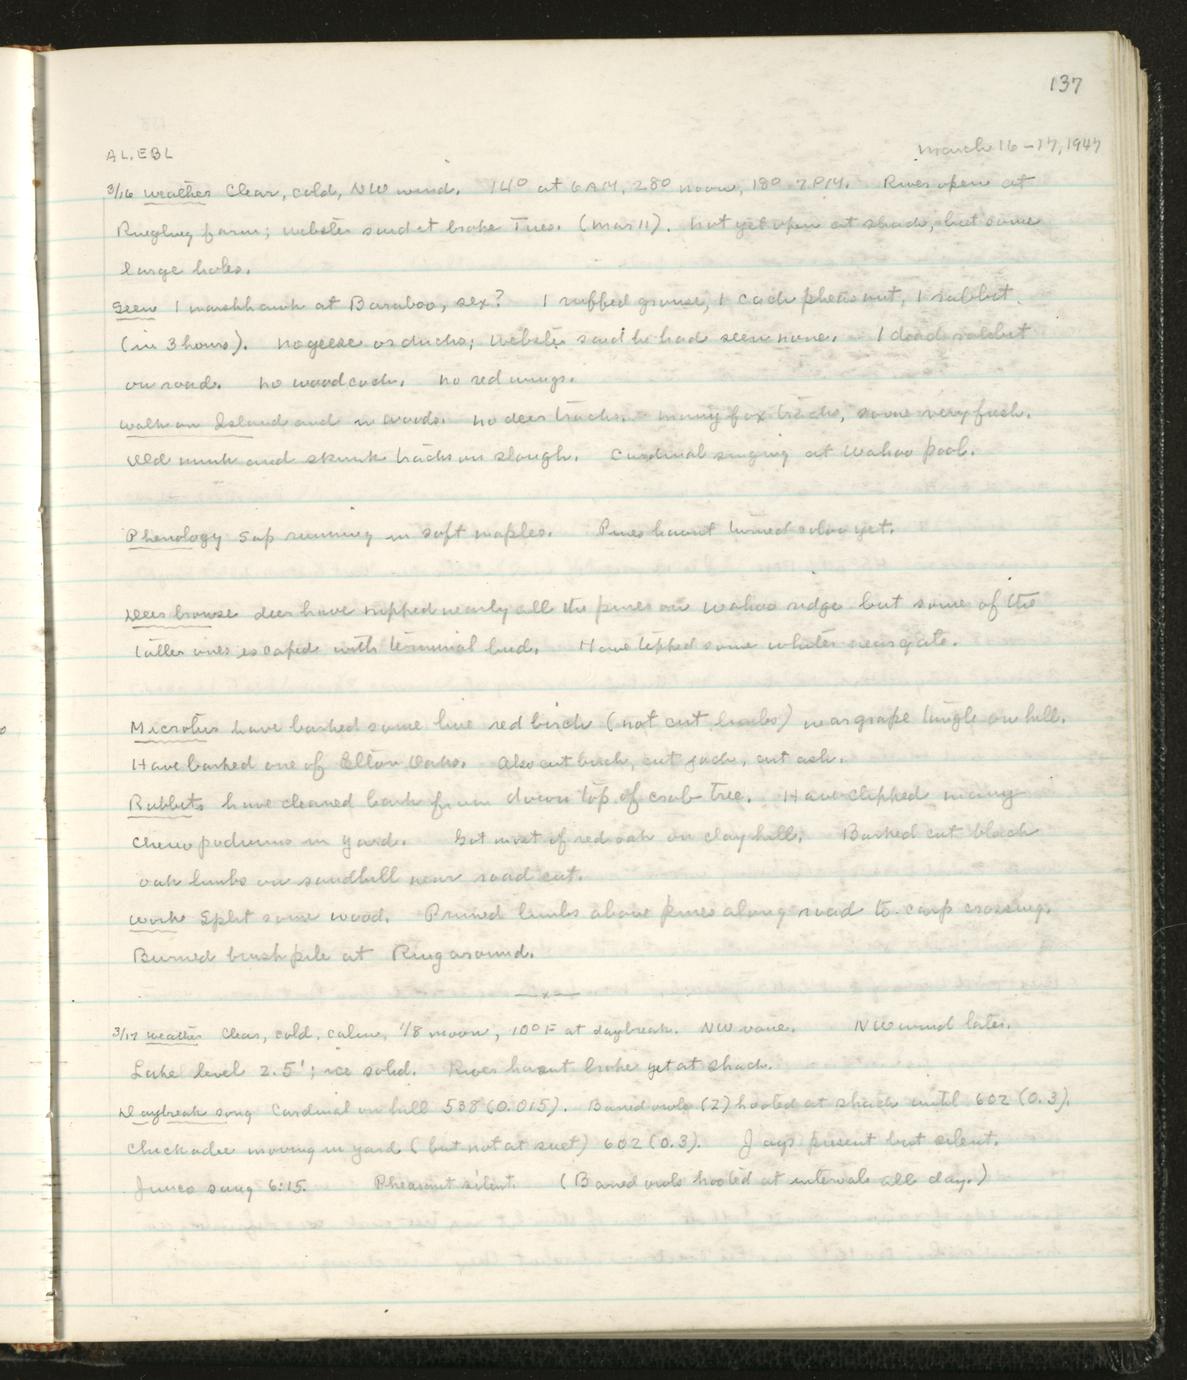 137
AL, EBL
March 16-17, 1947
3/16 Weather Clear, cold, NW wind. 14° at 6AM, 28° noon, 18° 7PM. River open at
Ringling farm; Webster said it broke Tues. (Mar 11). Not yet open at shack, but some
large holes.
Seen 1 marshhawk at Baraboo, sex? 1 ruffed grouse, 1 cock pheasant, 1 rabbit
(in 3 hours). No geese or ducks; Webster said he had seen none. 1 dead rabbit
on road. No woodcock. No redwings.
Walk on Island and in woods. No deer tracks. Many fox tracks, some very fresh.
Old mink and skunk tracks on slough. Cardinal singing at Wahoo pool.
Phenology Sap running in soft maples. Pines havent turned color yet.
Deer browse deer have nipped nearly all the pines on Wahoo ridge but some of the
taller ones escaped with terminal bud. Have tipped some whites near gate.
Microtus have barked some live red birch (not cut limbs) near grape tangle on hill.
Have barked one of Elton Oaks. Also cut birch, cut jack, cut ash.
Rabbits have cleaned bark from down top of crab tree. Have clipped many
chenopodiums in yard. Got most of red oak on clay hill. Barked cut black
oak limbs on sandhill near road cut.
Work Split some wood. Pruned limbs above pines along road to carp crossing.
Burned brush pile at Ringaround.
—x—
3/17 Weather Clear, cold, calm, 1/8 moon, 10°F at daybreak. NW vane. NW wind later.
Lake level 2.5'; ice solid. River havent broke yet at shack.
Daybreak song Cardinal on hill 538 (0.015). Barred owls (2) hooted at shack until 602 (0.3).
Chickadee moving in yard (but not at suet) 602 (0.3). Jays present but silent.
Junco sang 6:15. Pheasant silent. (Barred owls hooted at intervals all day.)